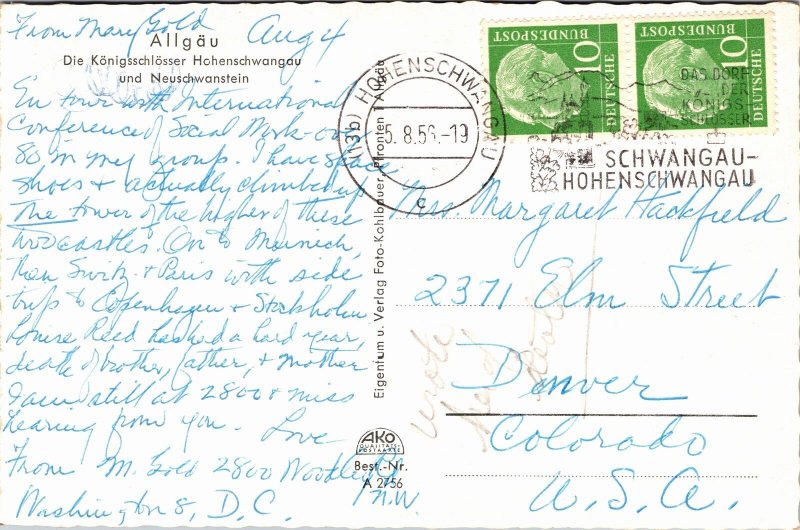 From Mary Gold Aug 4
Allgäu
Die Königsschlösser Hohenschwangau
und Neuschwanstein
En tour with International
Conference of Social Work - over
80 in my group. I have space
shoes & actually climbed up
The tower of the higher of these
two castles. On to Munich,
then Switz. & Paris with side
trip to Copenhagen & Stockholm
Louise Reed has had a hard year,
death of brother, father, & mother
I am still at 2800 & miss
hearing from you. Love
From M. Gold 2800 Woodley Rd
N.W.
Washington 8, D.C.
Eigentum u. Verlag Foto-Kohlbauer, Pfronten i. Allgäu
AKO
QUALITÄTS-
POSTKARTE
Best.-Nr.
A 2756
(13b) HOHENSCHWANGAU
5.8.56.-19
c
10
DEUTSCHE
BUNDESPOST
10
DEUTSCHE
BUNDESPOST
DAS DORF
DER
KÖNIGS-
SCHLÖSSER
SCHWANGAU-
HOHENSCHWANGAU
Mrs. Margaret Hackfield
2371 Elm Street
Denver
Colorado
U.S.A.
wrote